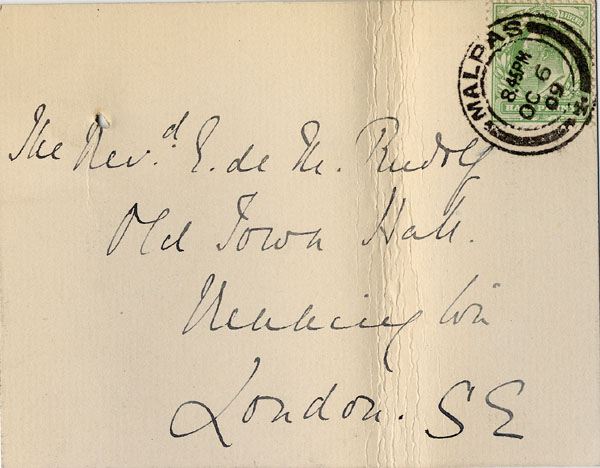 MALPAS
8.45PM
OC 6
09
HALFPENNY
The Rev.d E. de M. Rudolf
Old Town Hall.
Kennington
London. SE